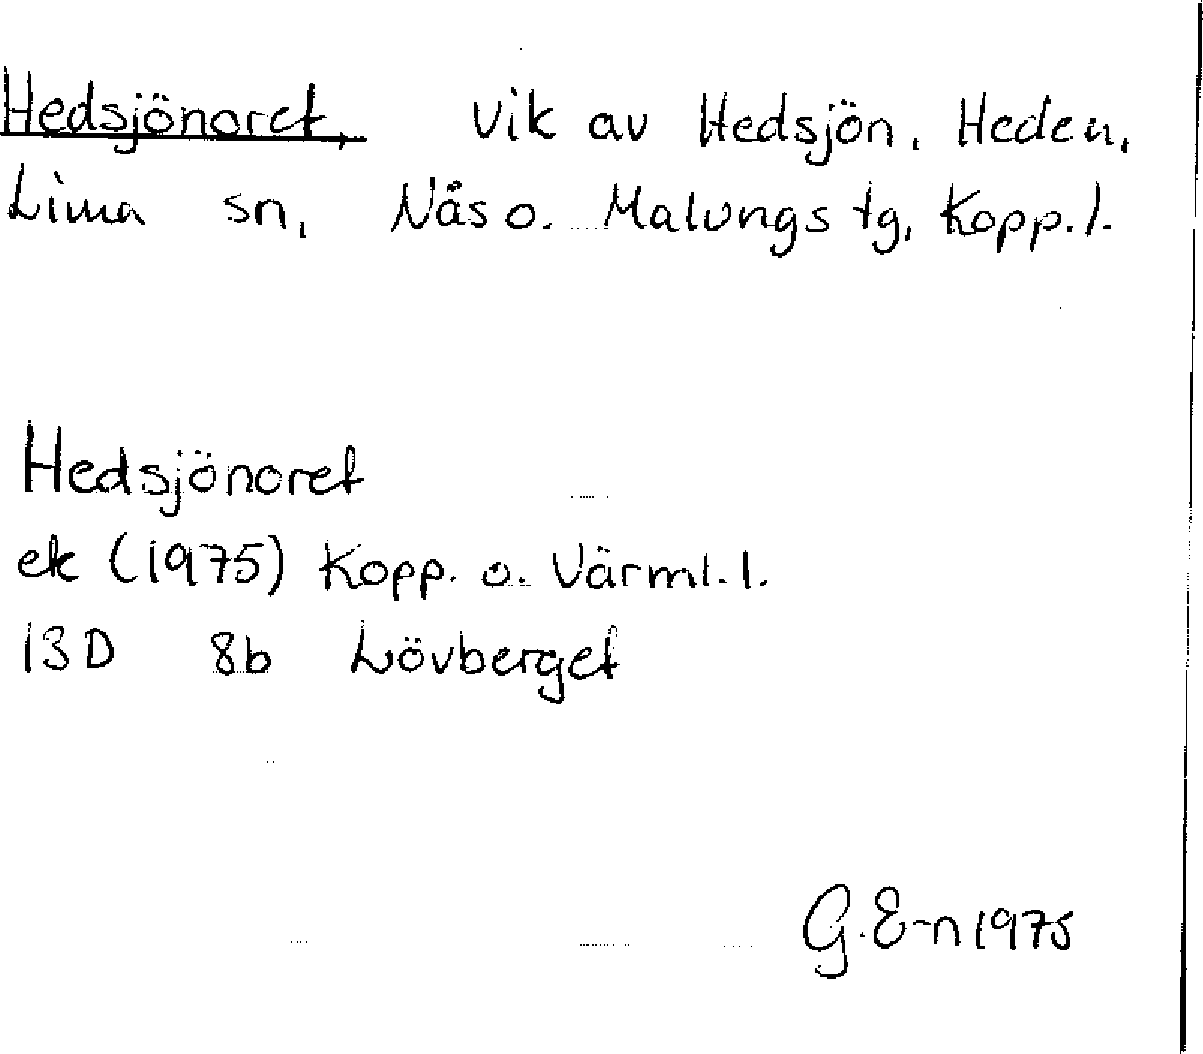 Hedsjönoret, Vik av Hedsjön, Heden,
Lima sn, Näs o. Malungs tg, Kopp.l.
Hedsjönoret
ek (1975) Kopp. o. Värml.l.
13D 8b Lövberget
G.E-n 1975